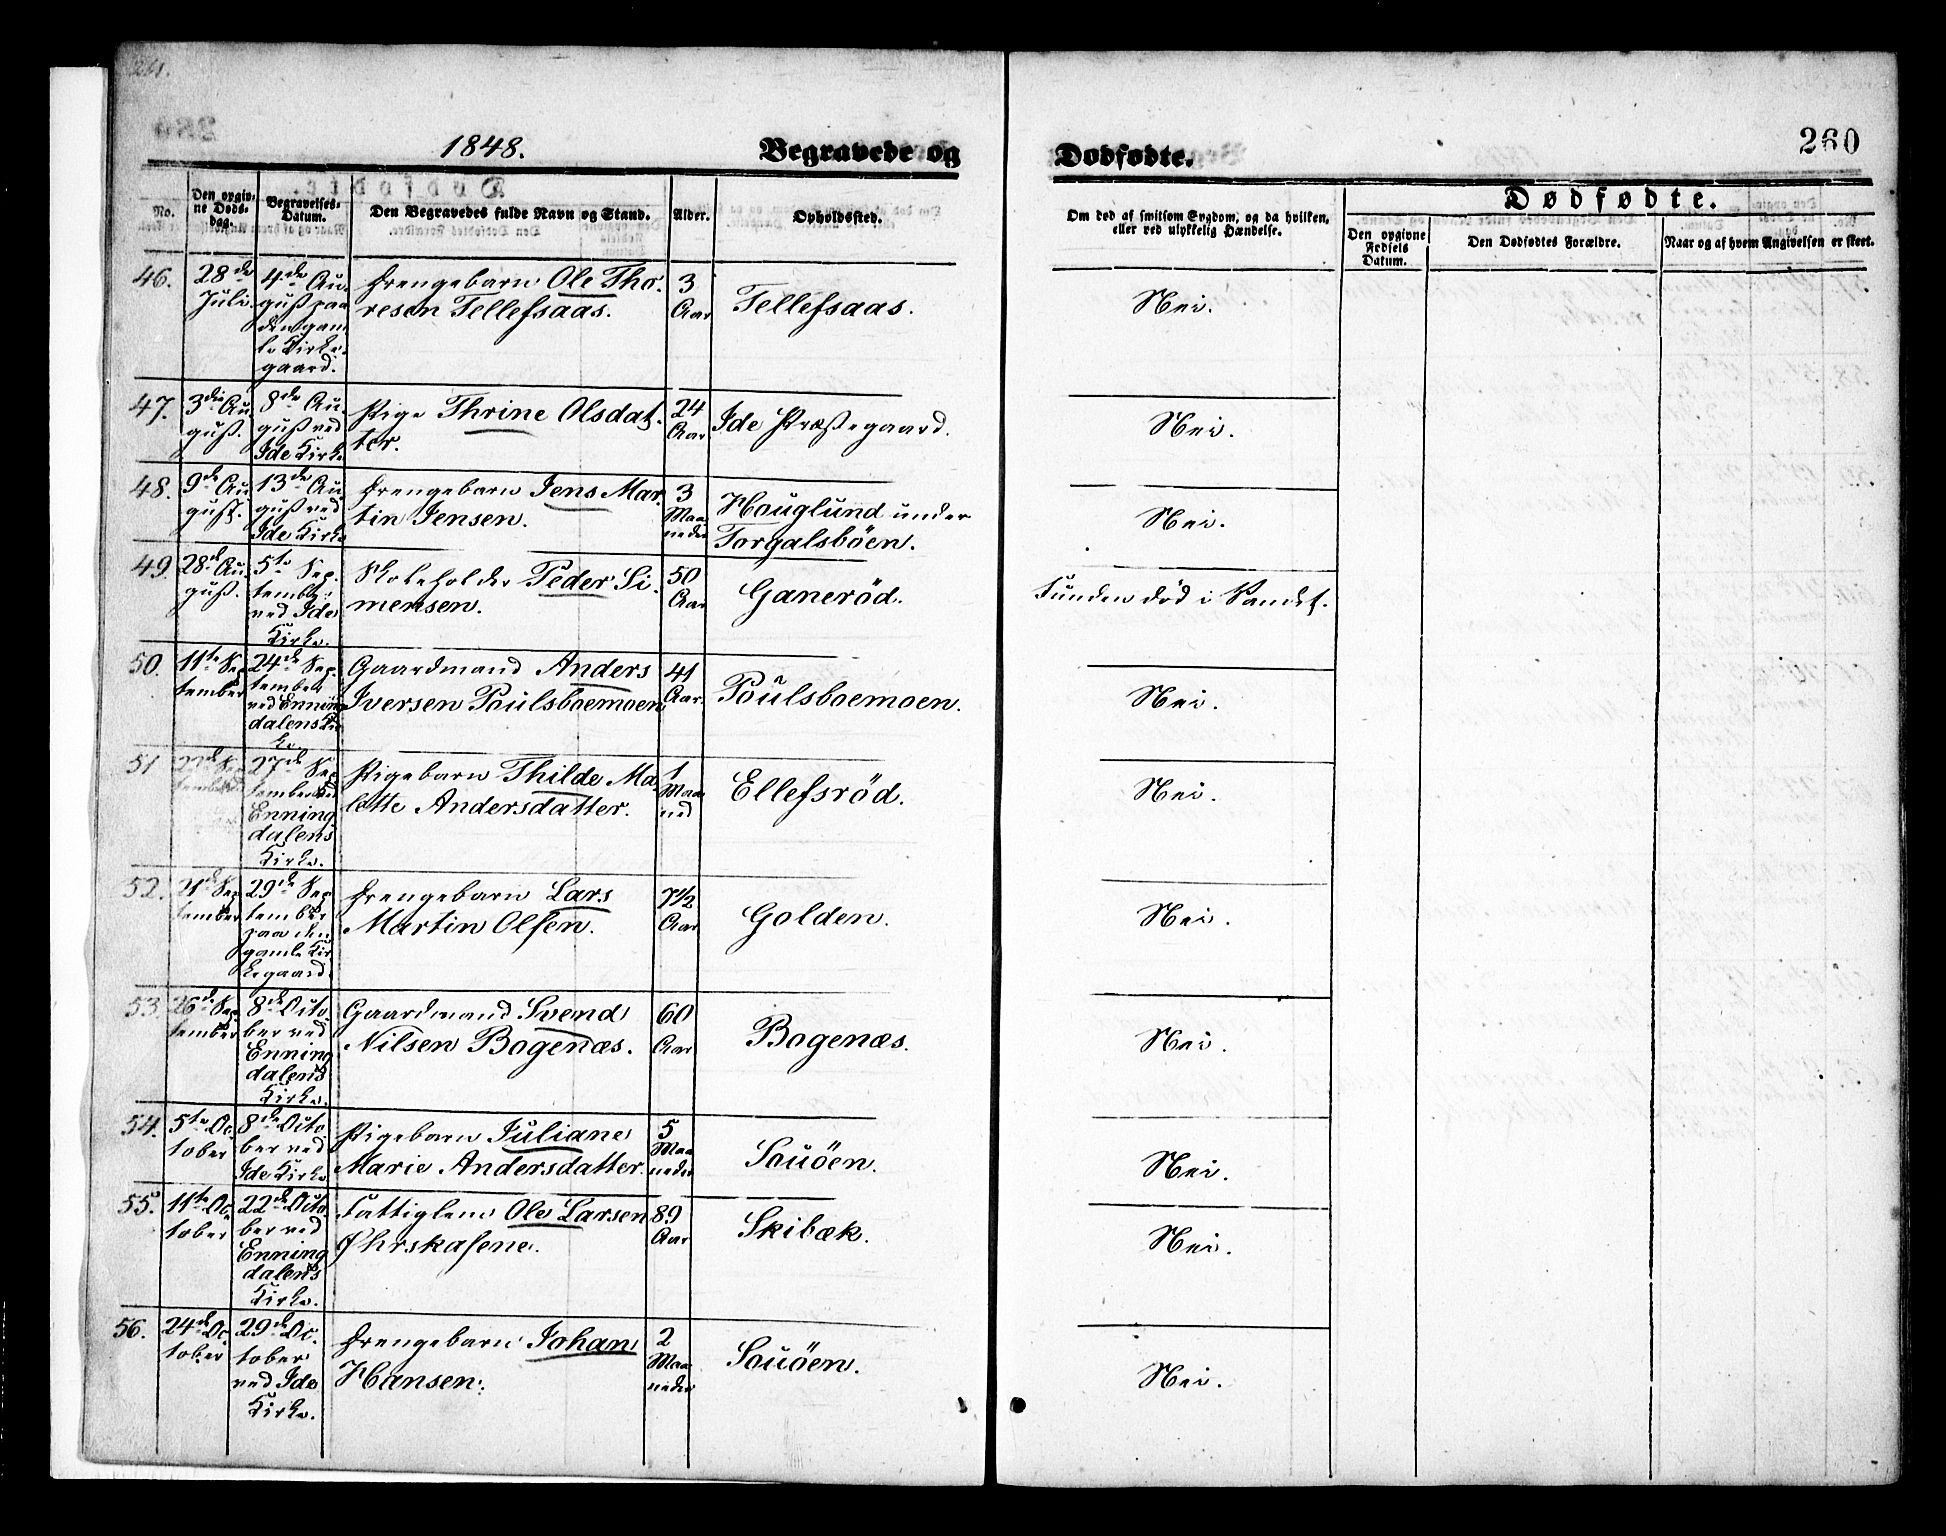 261.
1848.
Begravede og
Dødfødte.
260
No.
Den opgiv-
ne Døds-
dag.
Begravelses-
Datum.
Den Begravedes fulde Navn og Stand.
Alder.
Opholdssted.
Om død af smitsom Sygdom, og da hvilken,
eller ved ulykkelig Hændelse.
Dødfødte.
Den opgivne
Fødsels
Datum.
Den Dødfødtes Forældre.
Naar og af hvem Angivelsen er skeet.
46.
28de
Juli.
4de Au-
gust paa
den gam
le Kirke-
gaard.
Drengebarn Ole Tho-
resen Tellefsaas.
3
Aar
Tellefsaas.
Nei.
47.
3die Au-
gust.
8de Au-
gust ved
Ide Kirke
Pige Thrine Olsdat-
ter.
24
Aar
Ide Præstegaard.
Nei.
48.
9de Au-
gust.
13de Au-
gust ved
Ide Kirke
Drengebarn Jens Mar-
tin Jensen.
3
Maa
neder
Houglund under
Torgalsböen.
Nei.
49.
28de Au-
gust.
5te Sep-
tembr:
ved Ide
Kirke.
Skoleholder Peder Si-
mensen.
50
Aar
Ganeröd.
Funden död i Vandet.
50.
11te Sep
tember
24de Sep-
tember
ved Enning
dalens Kir
ke
Gaardmand Anders
Iversen Poulsboemoen
41
Aar.
Poulsboemoen.
Nei.
51
22de Sep
tember
27de Sep
tember ved
Enning
dalens
Kirke.
Pigebarn Thilde Ma-
lette Andersdatter.
1
Maa
ned
Ellefsröd.
Nei.
52.
21de Sep
tember
29de Sep
tember
paa den
gamle Kir
kegaard.
Drengebarn Lars
Martin Olsen.
7 1/2
Aar
Golden.
Nei.
53.
26de Sep
tember
8de Octo
ber ved
Enning
dalens
Kirke.
Gaardmand Svend
Nilsen Bogenæs.
60
Aar
Bogenæs.
Nei.
54.
5te Oc
tober
8de Octo
ber ved
Ide Kirke
Pigebarn Juliane
Marie Andersdatter.
5
Maa
neder
Sauöen.
Nei.
55.
11te Oc
tober
22de Octo
ber ved
Enning
dalens
Kirke.
Fattiglem Ole Larsen
Øhrskasene.
89
Aar
Skibæk.
Nei.
56.
24de Oc
tober
29de Oc-
tober
ved Ide
Kirke.
Drengebarn Johan
Hansen.
2
Maa
neder
Sauöen.
Nei.